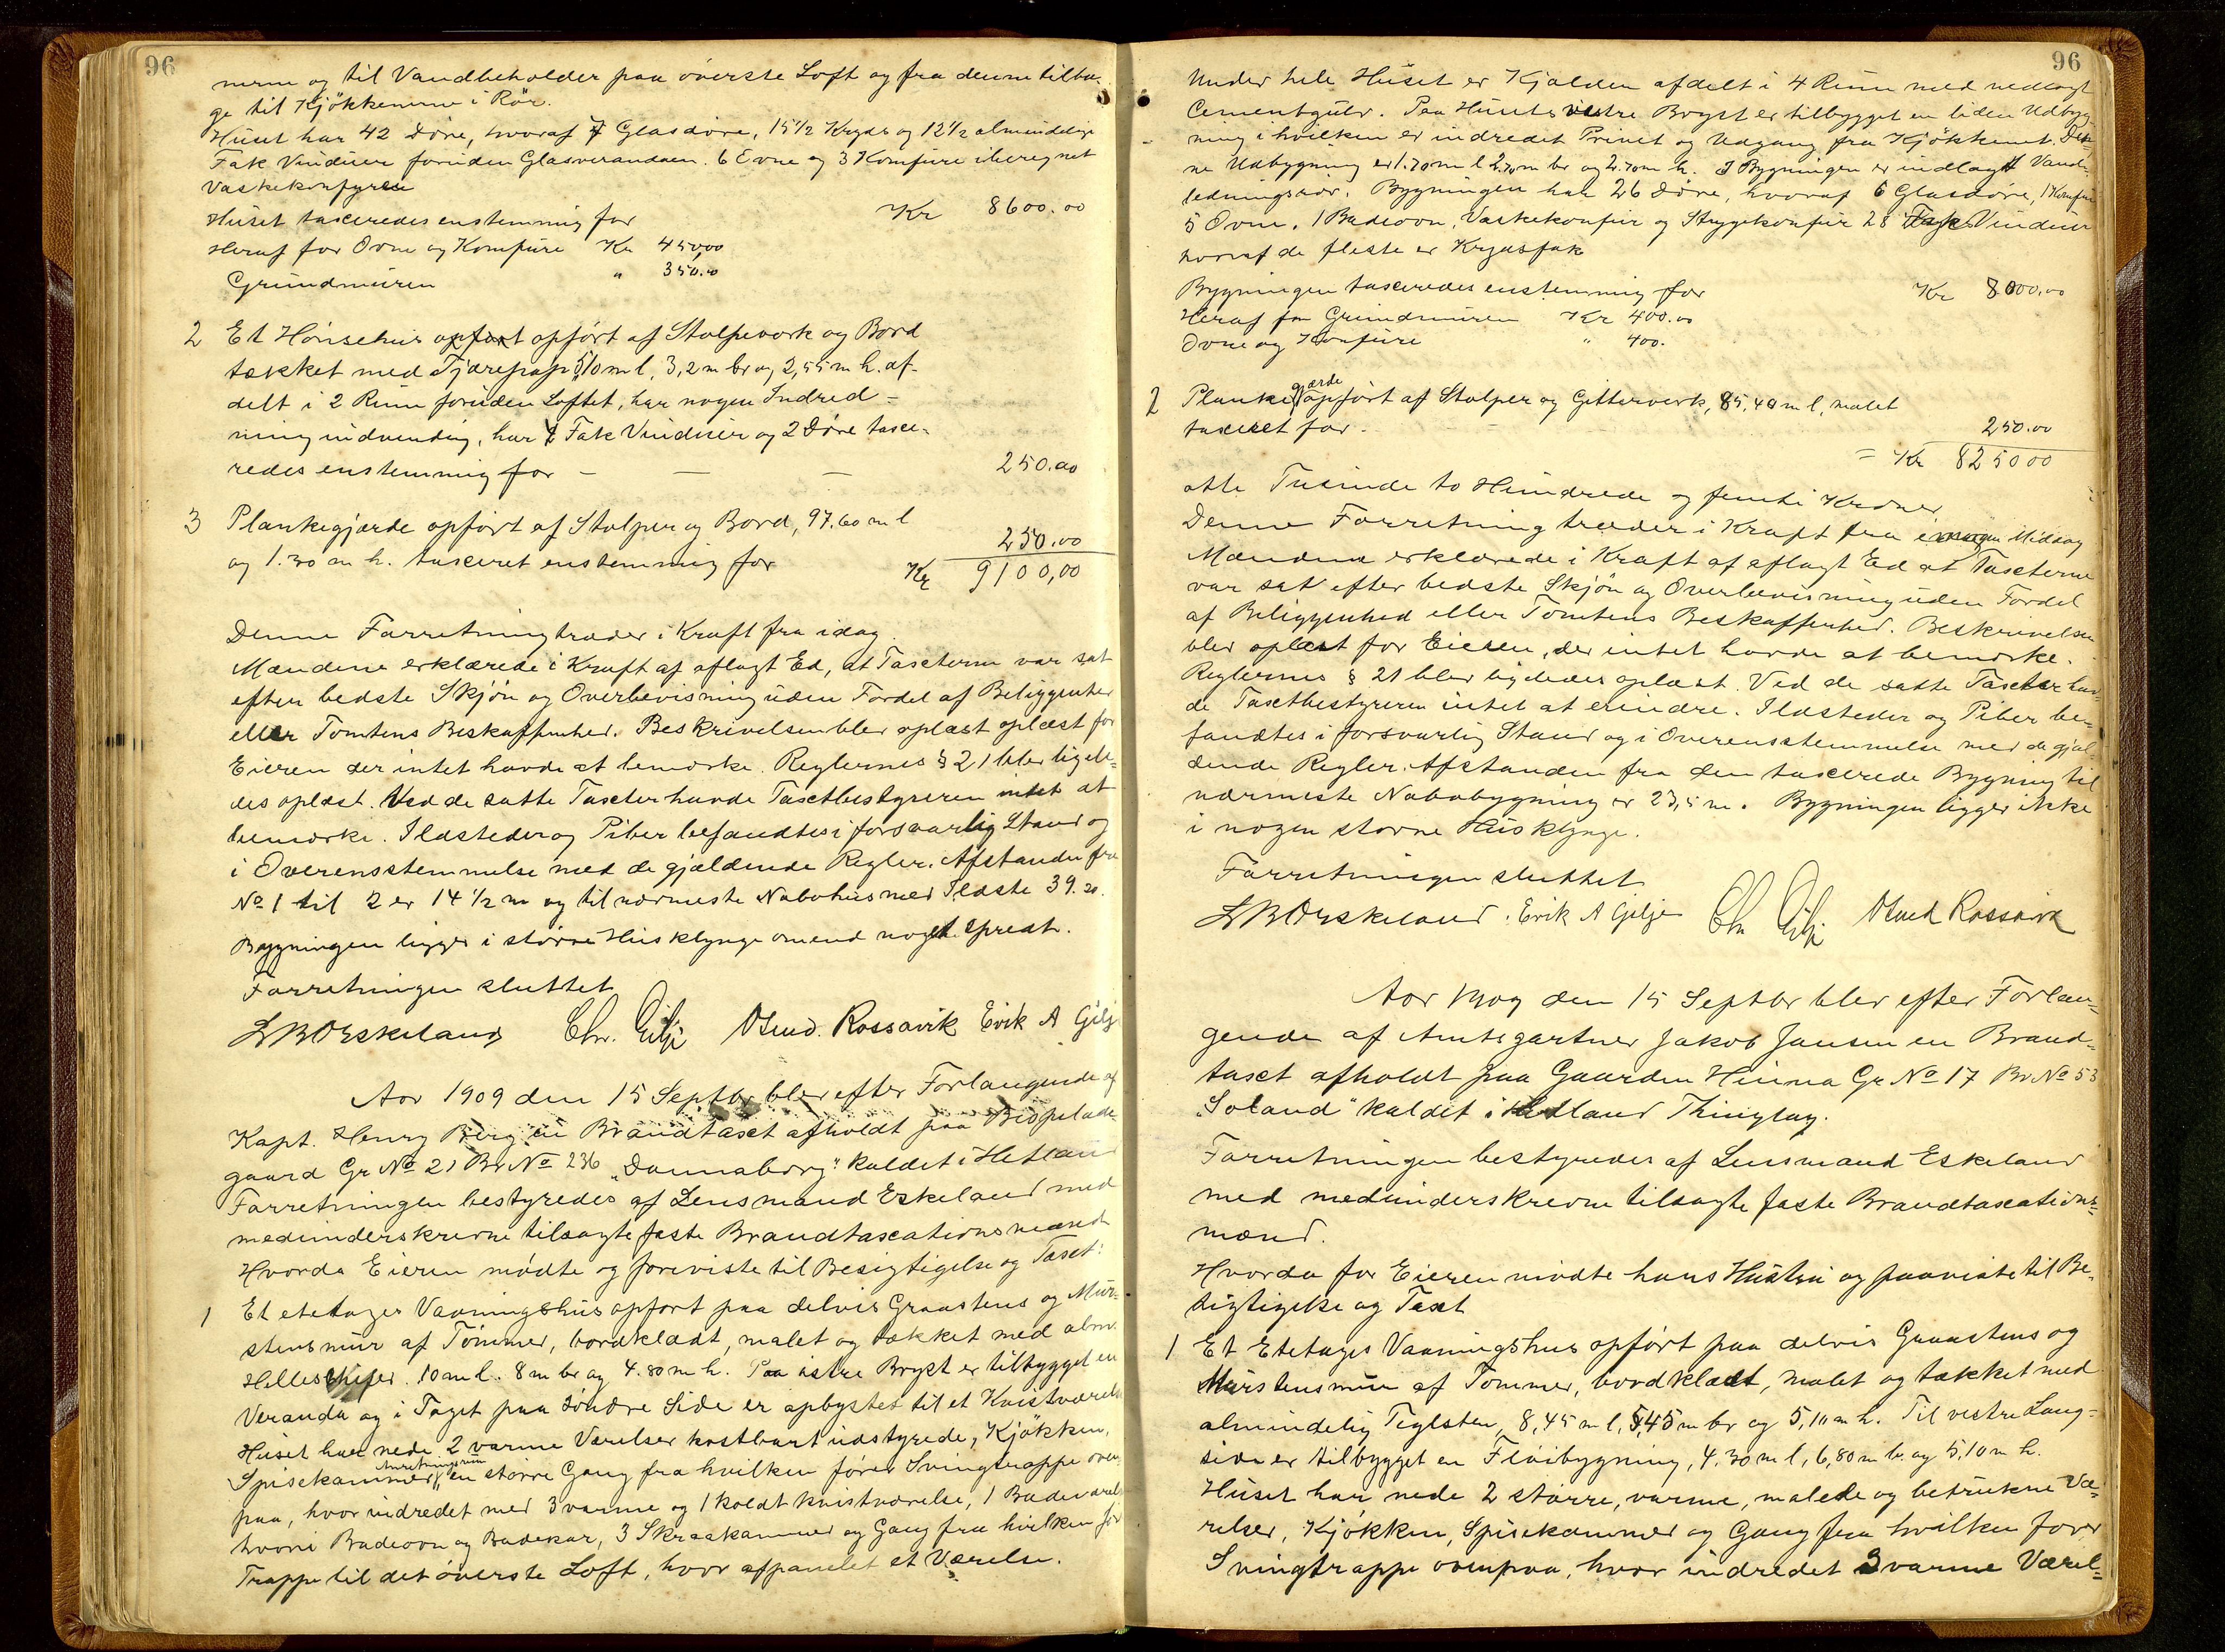 96
nerne og til Vandbeholder paa øverste Loft og fra denne tilba-
ge til Kjøkkenerne i Rør.
Huset har 42 Døre, hvoraf 7 Glasdøre, 15 1/2 Kryds og 12 1/2 almindelige
Fak Vinduer foruden Glasverandaen. 6 Ovne og 3 Komfure iberegnet
Vaskekomfyren
Huset taxeredes enstemmig for Kr 8600.00
Heraf for Ovne og Komfure Kr 450,00
Grundmuren " 350.00
2 Et Hönsehus opført af Stolpeverk og Bord
tækket med Tjærepap 5,10 m l, 3,2 m br og 2,55 m h. af-
delt i 2 Rum foruden Loftet, har nogen Indred-
ning indvendig, har 4 Fak Vinduer og 2 Døre taxe-
redes enstemmig for - - - 250.00
3 Plankegjærde opført af Stolper og Bord, 97.60 m l
og 1.30 m h. taxeret enstemmig for 250.00
Kr 9100,00
Denne Forretning træder i Kraft fra idag.
Mændene erklærede i Kraft af aflagt Ed, at Taxterne var sat
efter bedste Skjøn og Overbevisning uden Fordel af Beliggenhed
eller Tomtens Beskaffenhed. Beskrivelsen blev oplæst oplæst for
Eieren der intet havde at bemærke. Reglernes § 21 blev ligele-
des oplæst. Ved de satte Taxter havde Taxtbestyreren intet at
bemærke. Ildsteder og Piber befandtes i forsvarlig Stand og
i Overensstemmelse med de gjældende Regler. Afstanden fra
No 1 til 2 er 14 1/2 m og til nærmeste Nabohus med Ildste 39.20.
Bygningen ligger i større Husklynge omend noget spredt.
Forretningen sluttet
LB Øskeland Chr. Gilje Osmd. Rossavik Erik A Gilje
Aar 1909 den 15 Septbr blev efter Forlangende af
Kapt. Henry Berg en Brandtaxt afholdt paa Bispelade-
gaard Gr No 21 Br No 236 "Dannaborg" kaldet i Hetland
Forretningen bestyredes af Lensmand Eskeland med
medunderskrevne tilsagte faste Brandtaxationsmænd
Hvorda Eieren mødte og foreviste til Besigtigelse og Taxt:
1 Et etetages Vaaningshus opført paa delvis Graastens og Mur-
stensmur af Tømmer, bordklædt, malet og tækket med alm.
Helleskifer. 10 m l. 8 m br og 4.80 m h. Paa østre Bryst er tilbygget en
Veranda og i Taget paa søndre Side er opbygget til et Kvistværelse
Huset har nede 2 varme Værelser kostbart udstyrede, Kjøkken,
Anretningsrum
Spisekammer, en større Gang fra hvilken fører Svingtrappe oven-
paa, hvor indredet med 3 varme og 1 koldt kvistværelse, 1 Badeværelse
hvori Badeovn og Badekar, 3 Skraakammer og Gang fra hvilken før
Trappe til det øverste Loft, hvor afpanelet et Værelse.
96
Under hele Huset er Kjælder afdelt i 4 Rum med nedlagt
Cementgulv. Paa Husets vestre Bryst er tilbygget en liden Udbyg-
ning i hvilken er indredet Privet og Udgang fra Kjøkkenet. Den-
ne Udbygning er 1.70 m l 2.70 m br og 2.70 m h. I Bygningen er indlagt Vand-
ledningsrør. Bygningen har 26 Døre, hvoraf 6 Glasdøre, 1 Komfur
5 Ovne, 1 Badeovn, Vaskekomfur og Strygekomfur 28 Fak Vinduer
hvoraf de fleste er Krydsfak
Bygningen taxeredes enstemmig for Kr 8000,00
Heraf for Grundmuren Kr 400.00
Ovne og Komfure " 400.
gjærde
2 Planke opført af Stolper og Gitterverk, 85,40 m l, malet
taxeret for - - - 250.00
= Kr 825000
otte Tusinde to Hundrede og femti Kroner
Denne Forretning træder i Kraft fra imorgen Middag
Mændene erklærede i Kraft af aflagt Ed at Taxterne
var sat efter bedste Skjøn og Overbevisning uden Fordel
af Beliggenhed eller Tomtens Beskaffenhed. Beskrivelsen
blev oplæst for Eieren, der intet havde at bemærke.
Reglernes § 21 blev ligeledes oplæst. Ved de satte Taxter hav-
de Taxtbestyreren intet at erindre. Ildsteder og Piber be-
fandtes i forsvarlig Stand og i Overensstemmelse med de gjæl-
dende Regler. Afstanden fra den taxerede Bygning til
nærmeste Nabobygning er 23,5 m. Bygningen ligger ikke
i nogen større Husklynge.
Forretningen sluttet
LB Øskeland. Erik A Gilje Chr Gilje Osmd Rossavik
Aar 1909 den 15 Septbr blev efter Forlan-
gende af Amtsgartner Jakob Jansen en Brand-
taxt afholdt paa Gaarden Hinna Gr No 17 Br No 53
"Soland" kaldet i Hetland Thinglag.
Forretningen bestyredes af Lensmand Eskeland
med medunderskrevne tilsagte faste Brandtaxations-
mænd.
Hvorda for Eieren mødte hans Hustru og paaviste til Be-
sigtigelse og Taxt
1 Et Etetages Vaaningshus opført paa delvis Graastens og
Murstensmur af Tømmer, bordklædt, malet og tækket med
almindelig Teglsten, 8,45 m l, 5,45 m br og 5,10 m h. Til vestre Lang-
side er tilbygget en Fløibygning, 4.30 m l, 6,80 m br og 5,10 m h.
Huset har nede 2 større, varme, malede og betrukne Væ-
relser, Kjøkken, Spisekammer og Gang fra hvilken fører
Svingtrappe ovenpaa, hvor indredet 3 varme Værel-